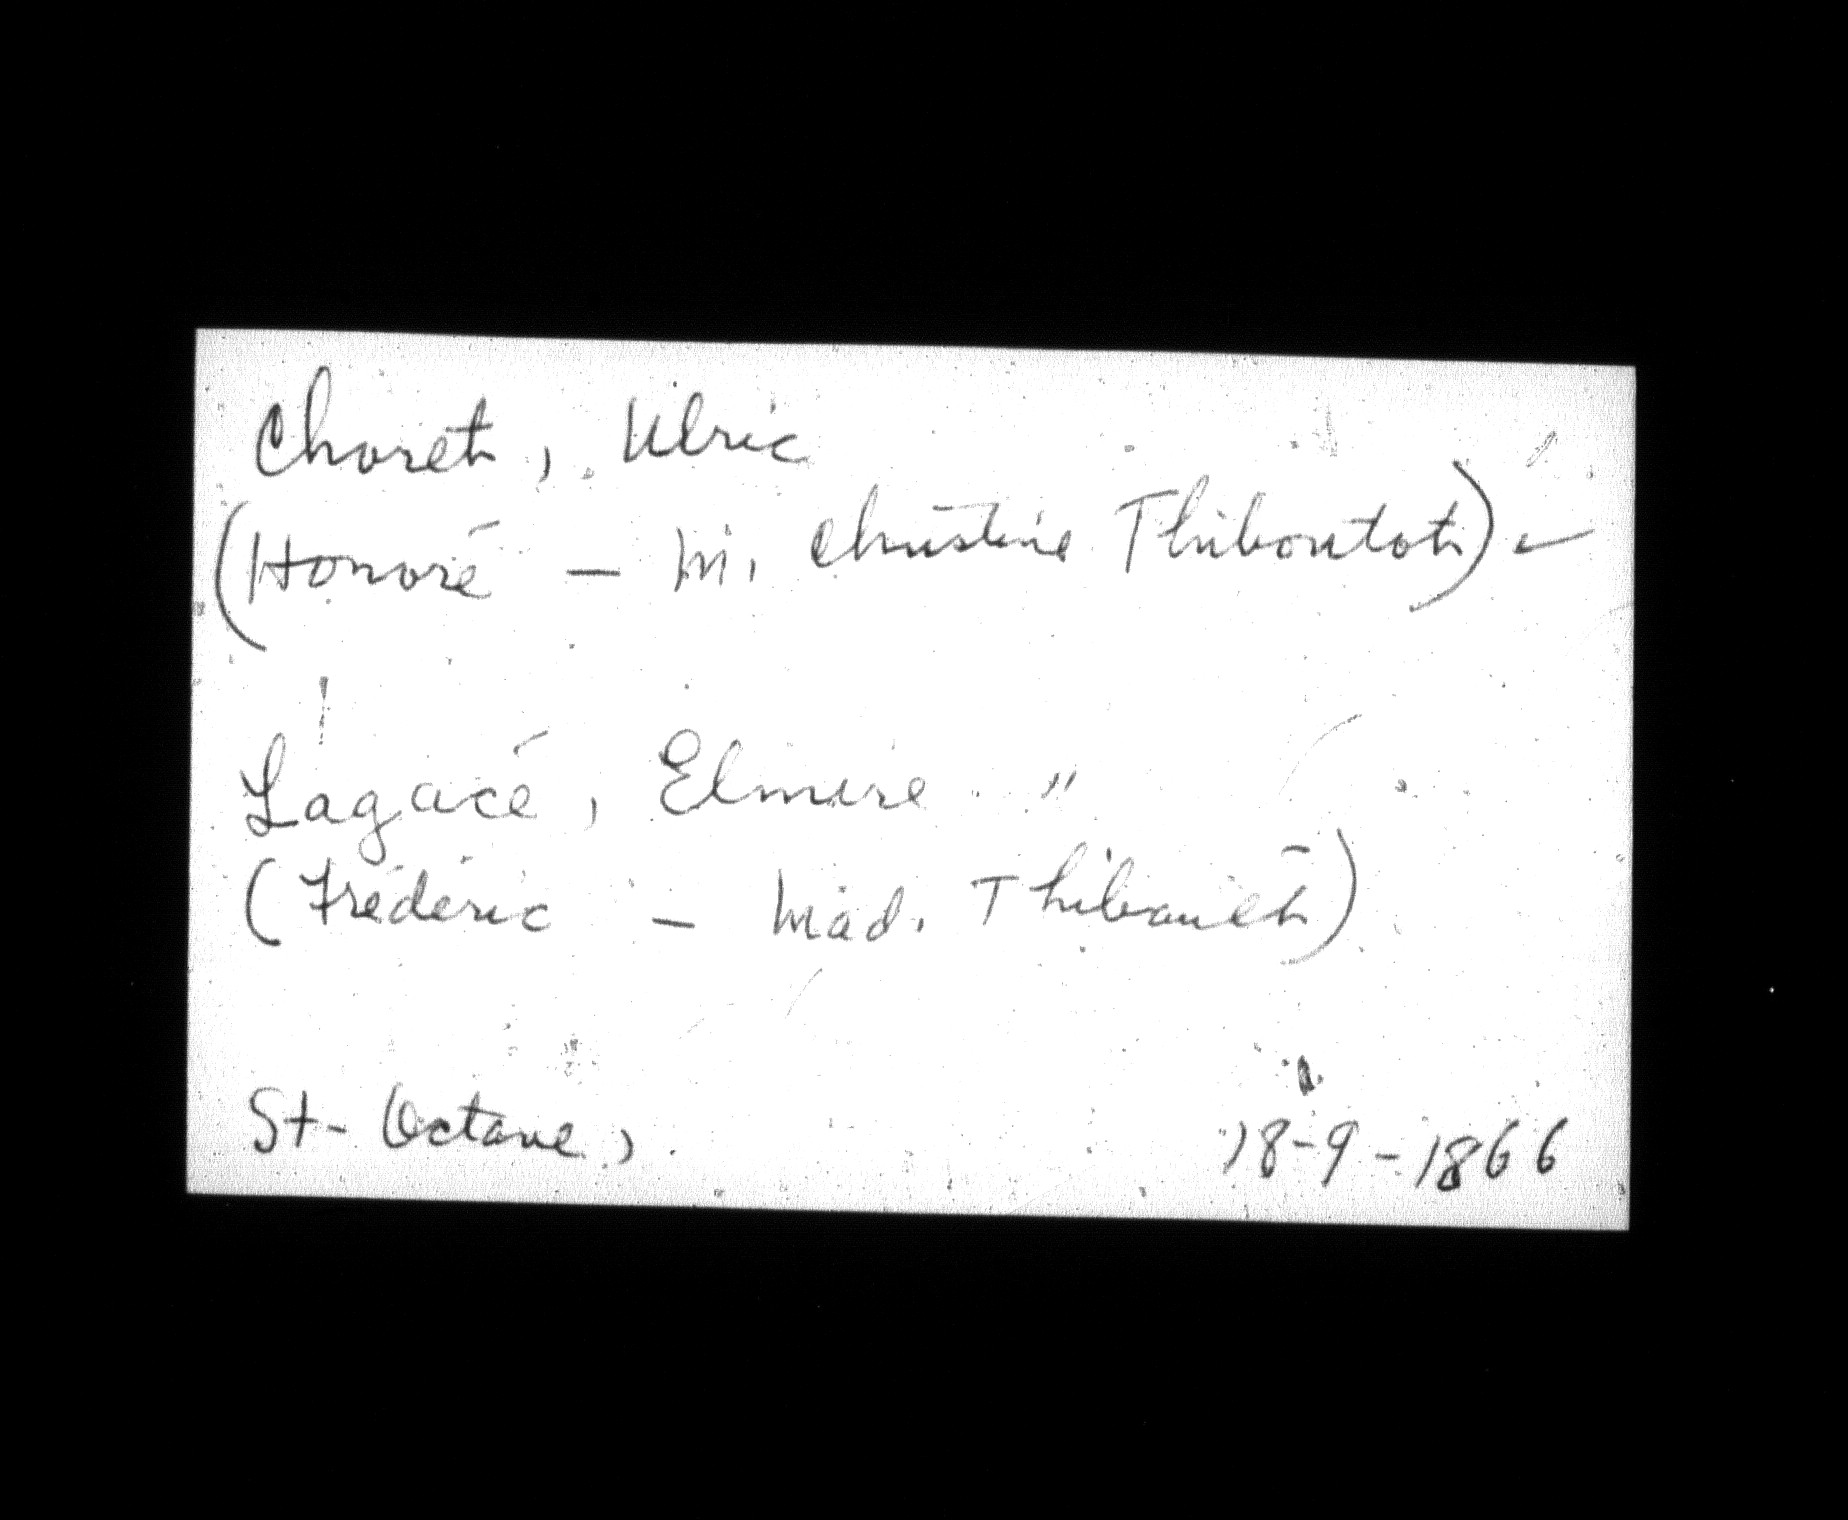 Choret, Ulric
(Honoré - M. Christine Thiboutot)
Lagacé, Elmire "
(Frédéric - Mad. Thibault)
St-Octave,
18-9-1866